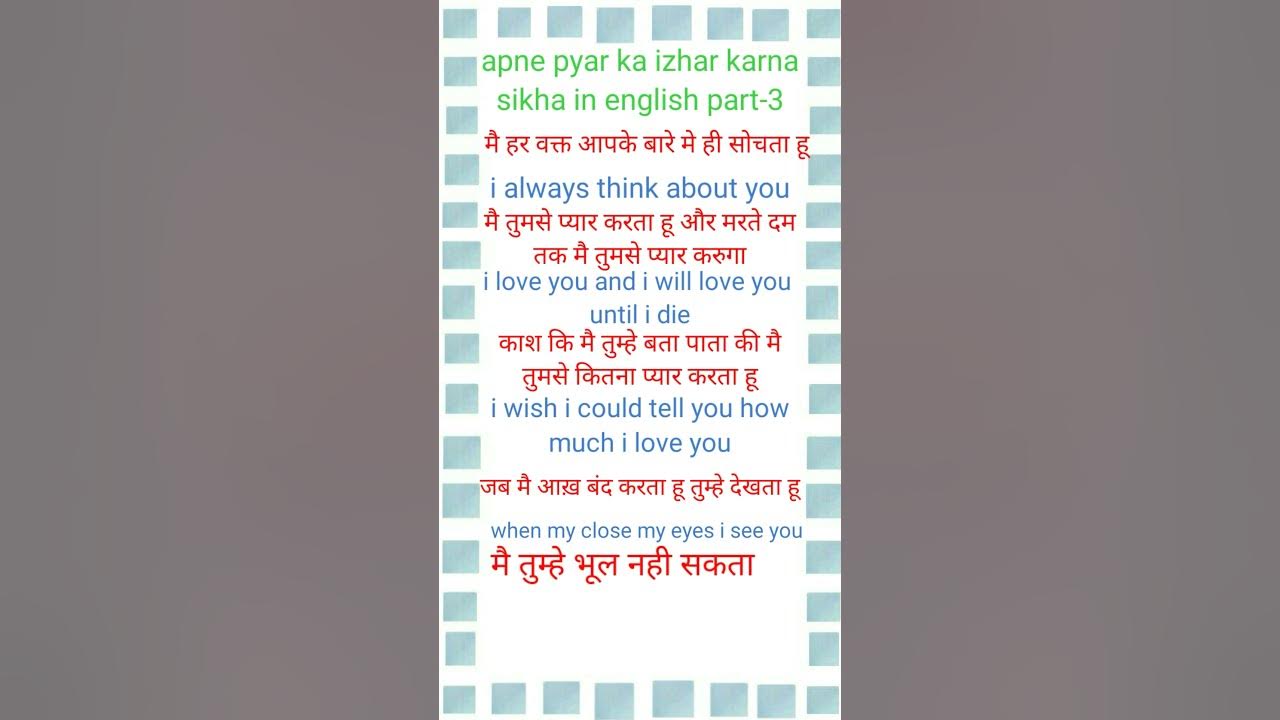 apne pyar ka izhar karna
sikha in english part-3
मै हर वक्त आपके बारे मे ही सोचता हू
i always think about you
मै तुमसे प्यार करता हू और मरते दम
तक मै तुमसे प्यार करुगा
i love you and i will love you
until i die
काश कि मै तुम्हे बता पाता की मै
तुमसे कितना प्यार करता हू
i wish i could tell you how
much i love you
जब मै आख़ बंद करता हू तुम्हे देखता हू
when my close my eyes i see you
मै तुम्हे भूल नही सकता